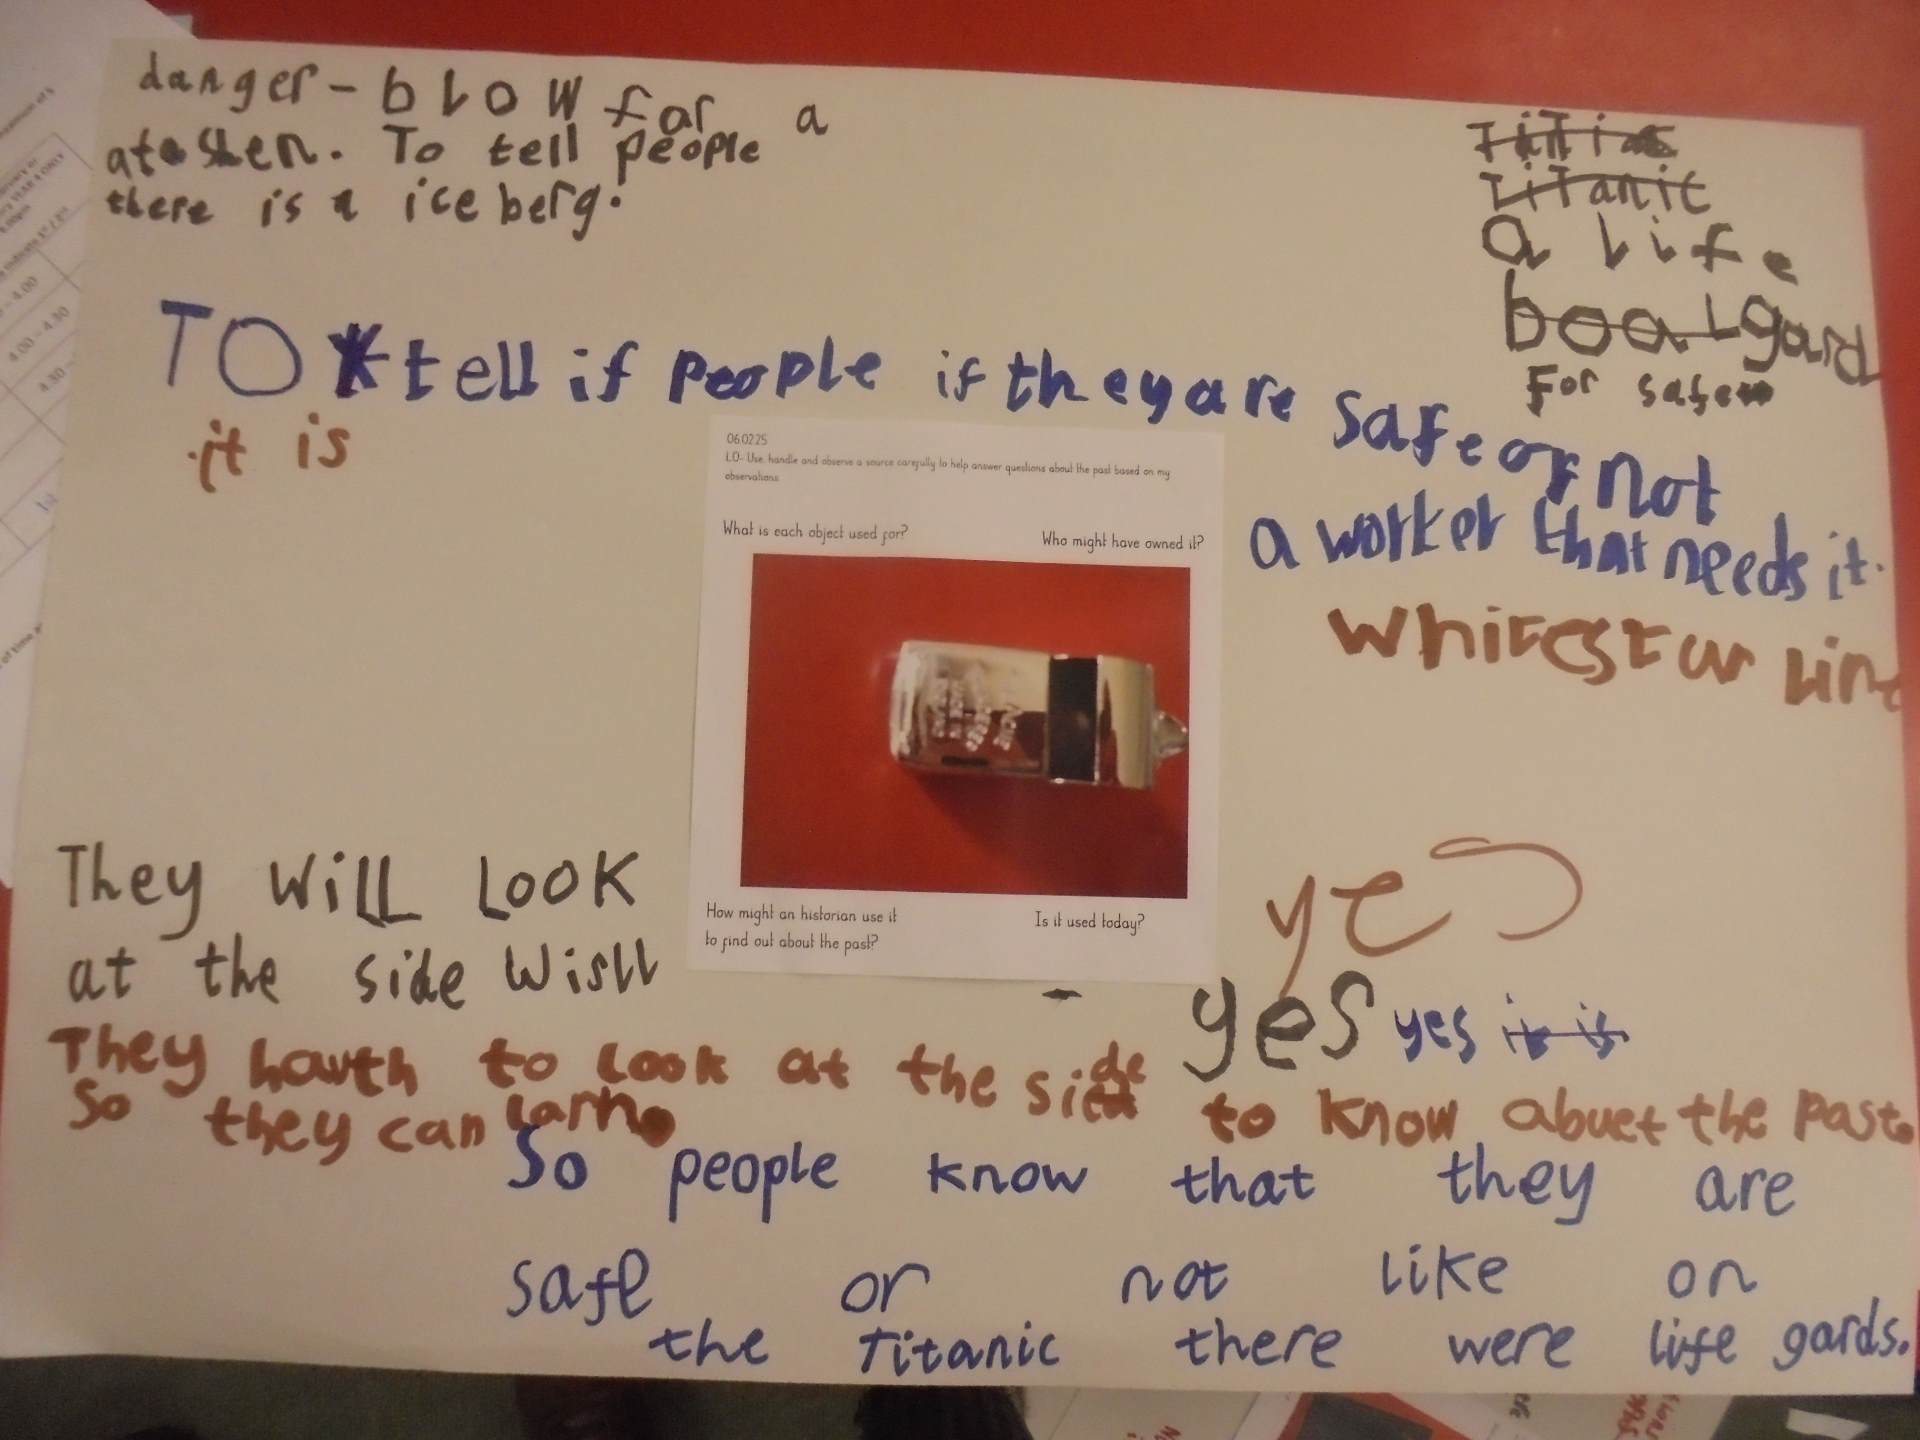 danger - blow for a
atenshen. To tell people
there is a ice berg.
Titanic
a life
boat gard
For safe
TO tell if people if they are safe or not
it is
a worker that needs it.
White star line
06.02.25
LO- Use, handle and observe a source carefully to help answer questions about the past based on my
observations.
What is each object used for?
Who might have owned it?
How might an historian use it
to find out about the past?
Is it used today?
They will look
at the side wisll
yes
yes yes it is
They hawth to look at the side to know abuet the past.
So they can larn.
So people know that they are
safe or not like on
the Titanic there were life gards.
4.00 - 4.30